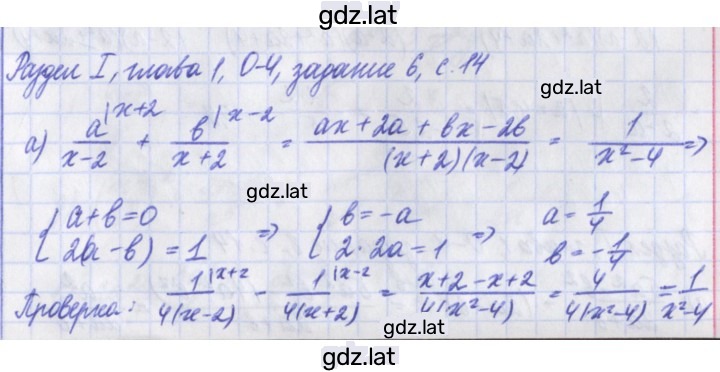 gdz.lat
Раздел I, глава 1, О-4, задание 6, с. 14
gdz.lat
а) a|x+2/(x-2) + b|x-2/(x+2) = (ax+2a+bx-2b)/((x+2)(x-2)) = 1/(x²-4) =>
gdz.lat
{a+b=0 {2(a-b)=1 => {b=-a {2·2a=1 => a=1/4 b=-1/4
Проверка: 1|x+2/(4(x-2)) - 1|x-2/(4(x+2)) = (x+2-x+2)/(4(x²-4)) = 4/(4(x²-4)) = 1/(x²-4)
gdz.lat
gdz.lat